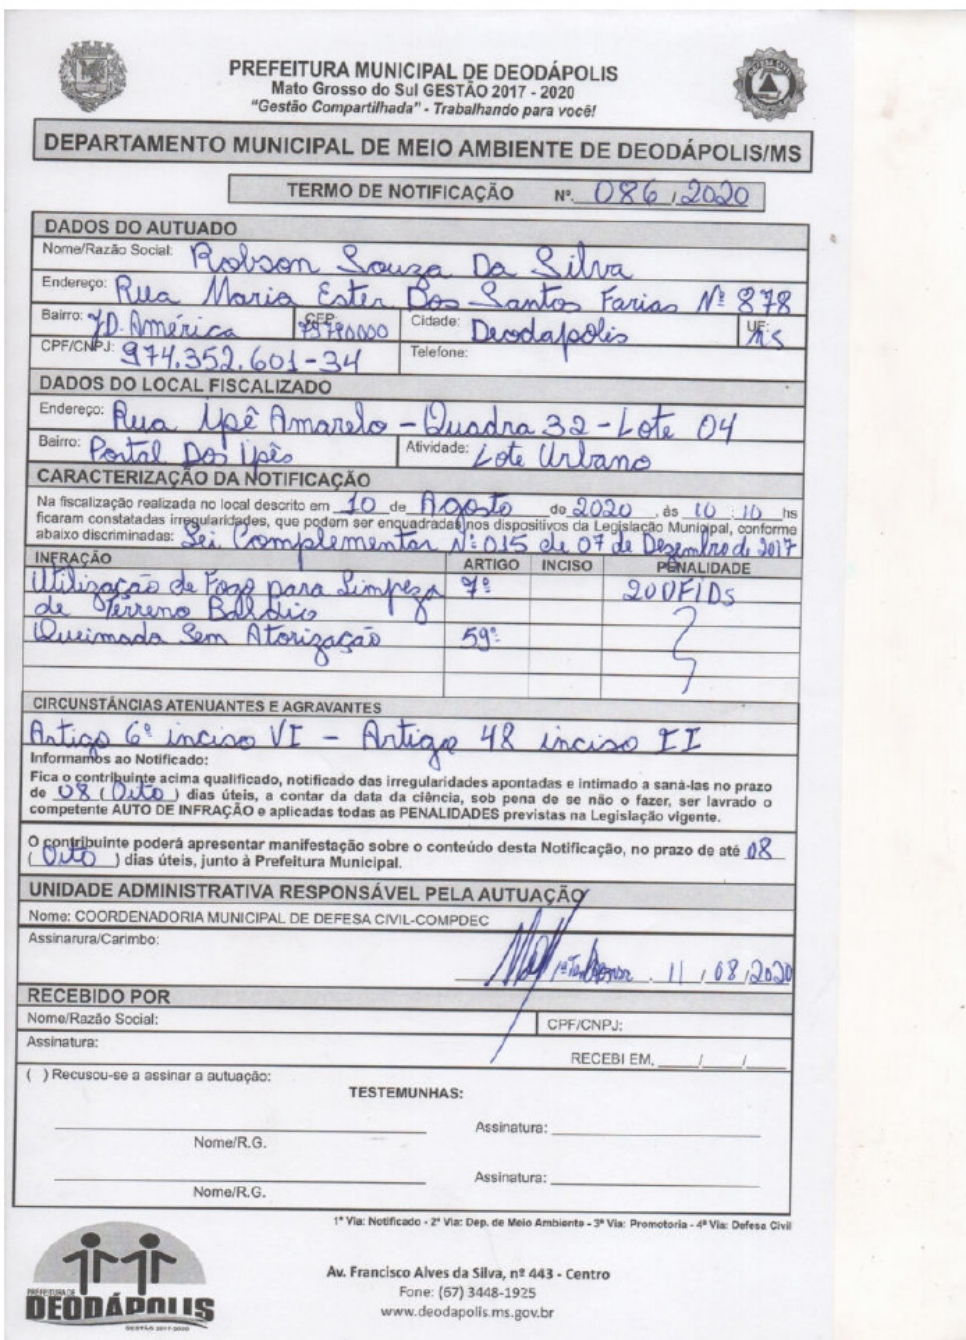 PREFEITURA MUNICIPAL DE DEODÁPOLIS
Mato Grosso do Sul GESTÃO 2017 - 2020
"Gestão Compartilhada" - Trabalhando para você!
DEFESA CIVIL
DEPARTAMENTO MUNICIPAL DE MEIO AMBIENTE DE DEODÁPOLIS/MS
TERMO DE NOTIFICAÇÃO Nº. 086 / 2020
DADOS DO AUTUADO
Nome/Razão Social: Robson Souza Da Silva
Endereço: Rua Maria Ester Dos Santos Farias Nº 878
Bairro: JD. América CEP: 79790000 Cidade: Deodapolis UF: MS
CPF/CNPJ: 974.352.601-34 Telefone:
DADOS DO LOCAL FISCALIZADO
Endereço: Rua Ipê Amarelo - Quadra 32 - Lote 04
Bairro: Portal Dos Ipês Atividade: Lote Urbano
CARACTERIZAÇÃO DA NOTIFICAÇÃO
Na fiscalização realizada no local descrito em 10 de Agosto de 2020, às 10:10 hs
ficaram constatadas irregularidades, que podem ser enquadradas nos dispositivos da Legislação Municipal, conforme
abaixo discriminadas: Lei Complementar Nº 015 de 07 de Dezembro de 2017
INFRAÇÃO ARTIGO INCISO PENALIDADE
Utilização de Fogo para Limpeza 7º 20UFIDs
de Terreno Baldio
Queimada Sem Atorização 59º
CIRCUNSTÂNCIAS ATENUANTES E AGRAVANTES
Artigo 6º inciso VI - Artigo 48 inciso II
Informamos ao Notificado:
Fica o contribuinte acima qualificado, notificado das irregularidades apontadas e intimado a saná-las no prazo
de 08 ( Oito ) dias úteis, a contar da data da ciência, sob pena de se não o fazer, ser lavrado o
competente AUTO DE INFRAÇÃO e aplicadas todas as PENALIDADES previstas na Legislação vigente.
O contribuinte poderá apresentar manifestação sobre o conteúdo desta Notificação, no prazo de até 08
( Oito ) dias úteis, junto à Prefeitura Municipal.
UNIDADE ADMINISTRATIVA RESPONSÁVEL PELA AUTUAÇÃO
Nome: COORDENADORIA MUNICIPAL DE DEFESA CIVIL-COMPDEC
Assinarura/Carimbo:
11 / 08 / 2020
RECEBIDO POR
Nome/Razão Social: CPF/CNPJ:
Assinatura: RECEBI EM, ____/____/____
( ) Recusou-se a assinar a autuação:
TESTEMUNHAS:
Assinatura:
Nome/R.G.
Assinatura:
Nome/R.G.
1ª Via: Notificado - 2ª Via: Dep. de Meio Ambiente - 3ª Via: Promotoria - 4ª Via: Defesa Civil
PREFEITURA DE
DEODÁPOLIS
GESTÃO 2017-2020
Av. Francisco Alves da Silva, nº 443 - Centro
Fone: (67) 3448-1925
www.deodapolis.ms.gov.br